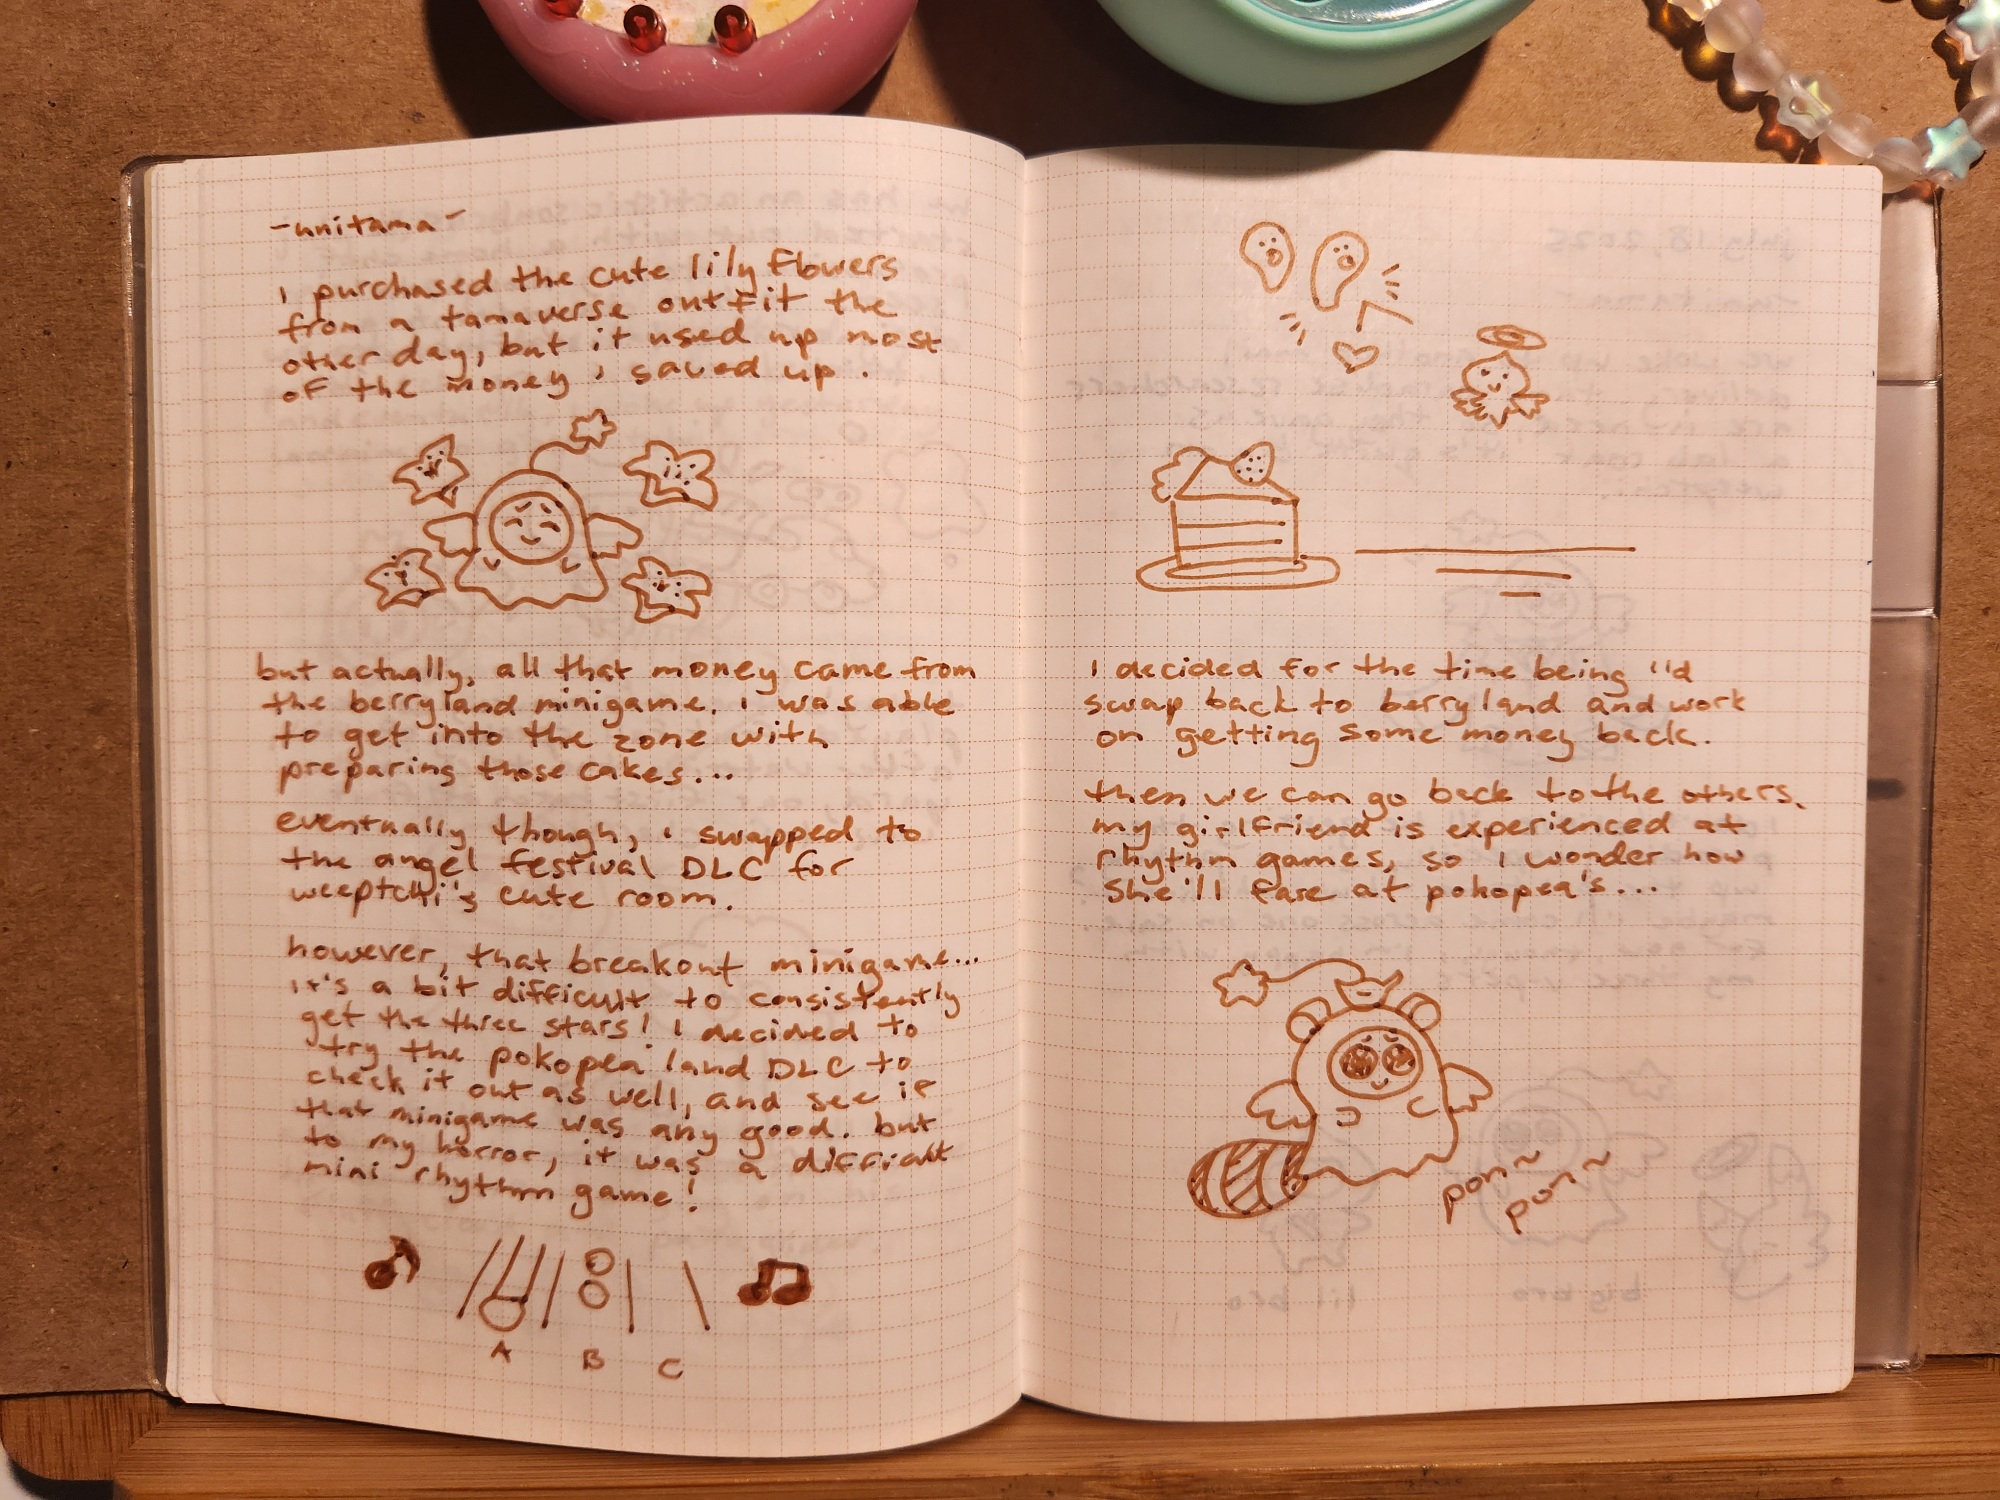 ~unitama~
i purchased the cute lily flowers
from a tamaverse outfit the
other day, but it used up most
of the money i saved up.
but actually, all that money came from
the berry land minigame. i was able
to get into the zone with
preparing those cakes...
eventually though, i swapped to
the angel festival DLC for
weeptchi's cute room.
however, that breakout minigame...
it's a bit difficult to consistently
get the three stars! i decided to
try the pokopea land DLC to
check it out as well, and see if
that minigame was any good. but
to my horror, it was a difficult
mini rhythm game!
A B C
i decided for the time being i'd
swap back to berry land and work
on getting some money back.
then we can go back to the others.
my girlfriend is experienced at
rhythm games, so i wonder how
she'll fare at pokopea's...
pon~
pon~